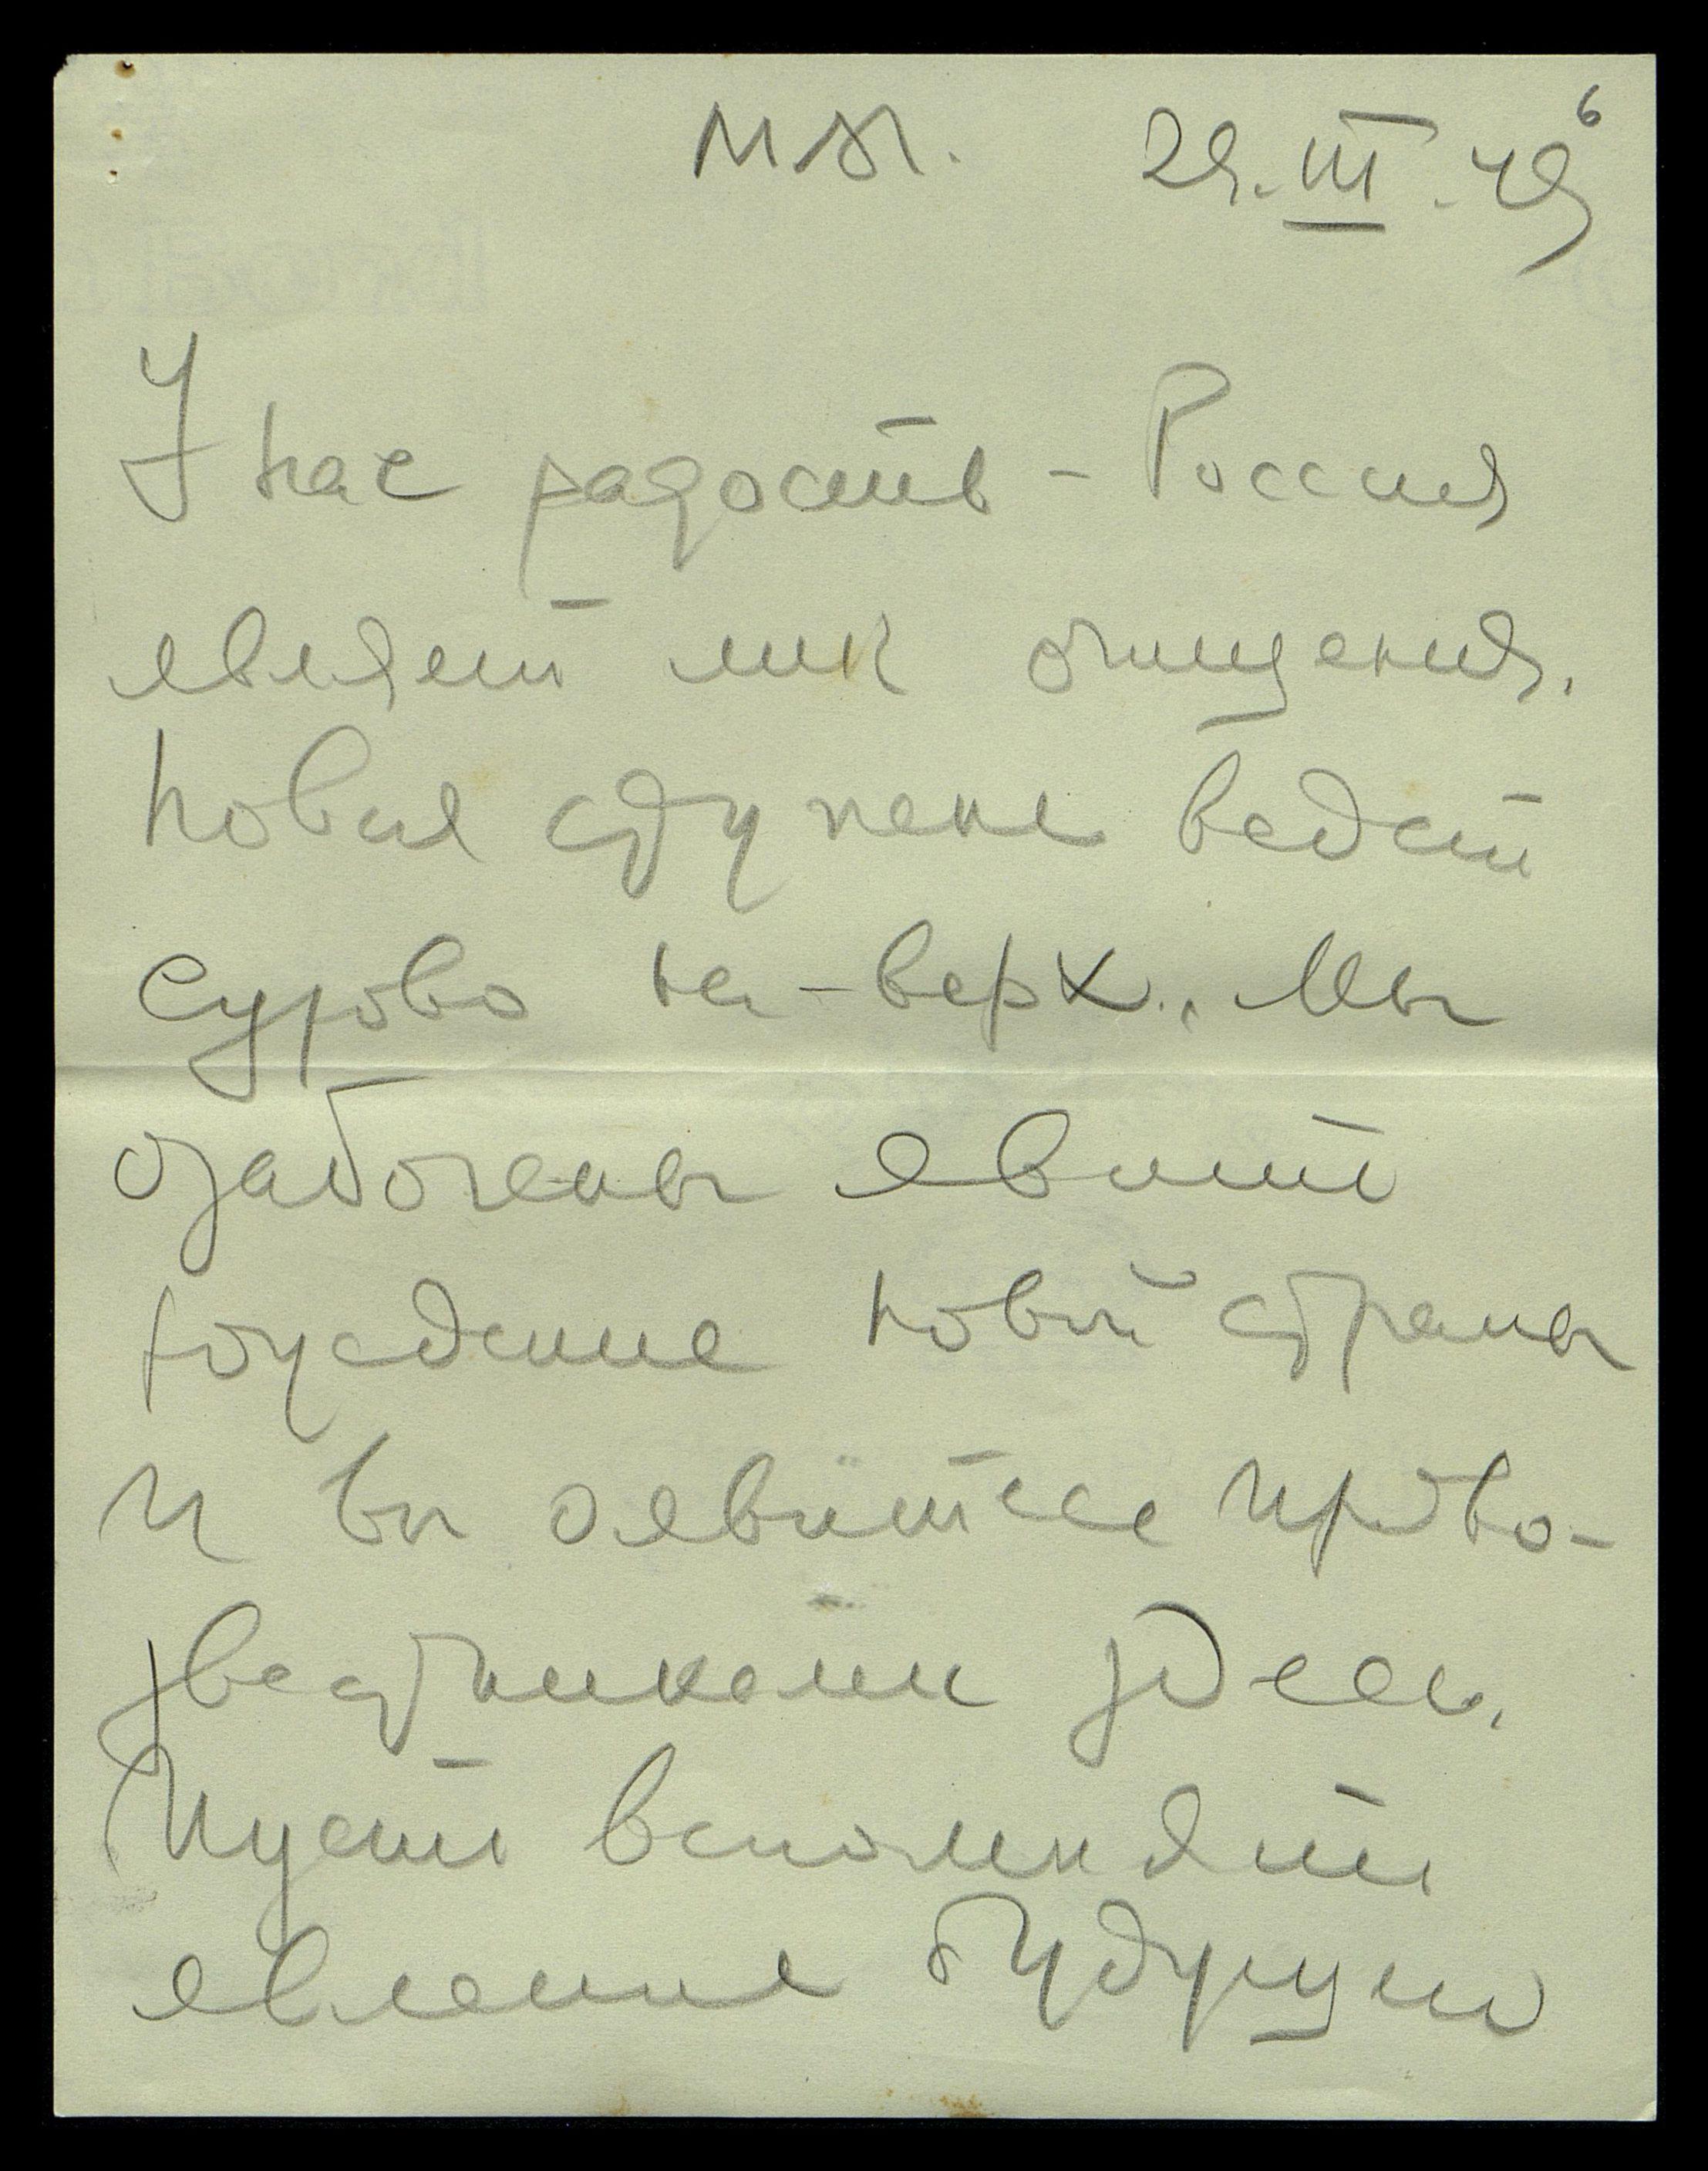 6
29.III.49
У нас радость – Россия
являет лик очищения.
Новая ступень ведет
сурово на-верх. Мы
озабочены явить
рождение новой страны
и вы явитесь прово-
звестниками здесь.
Пусть вспомнят
явление будущую